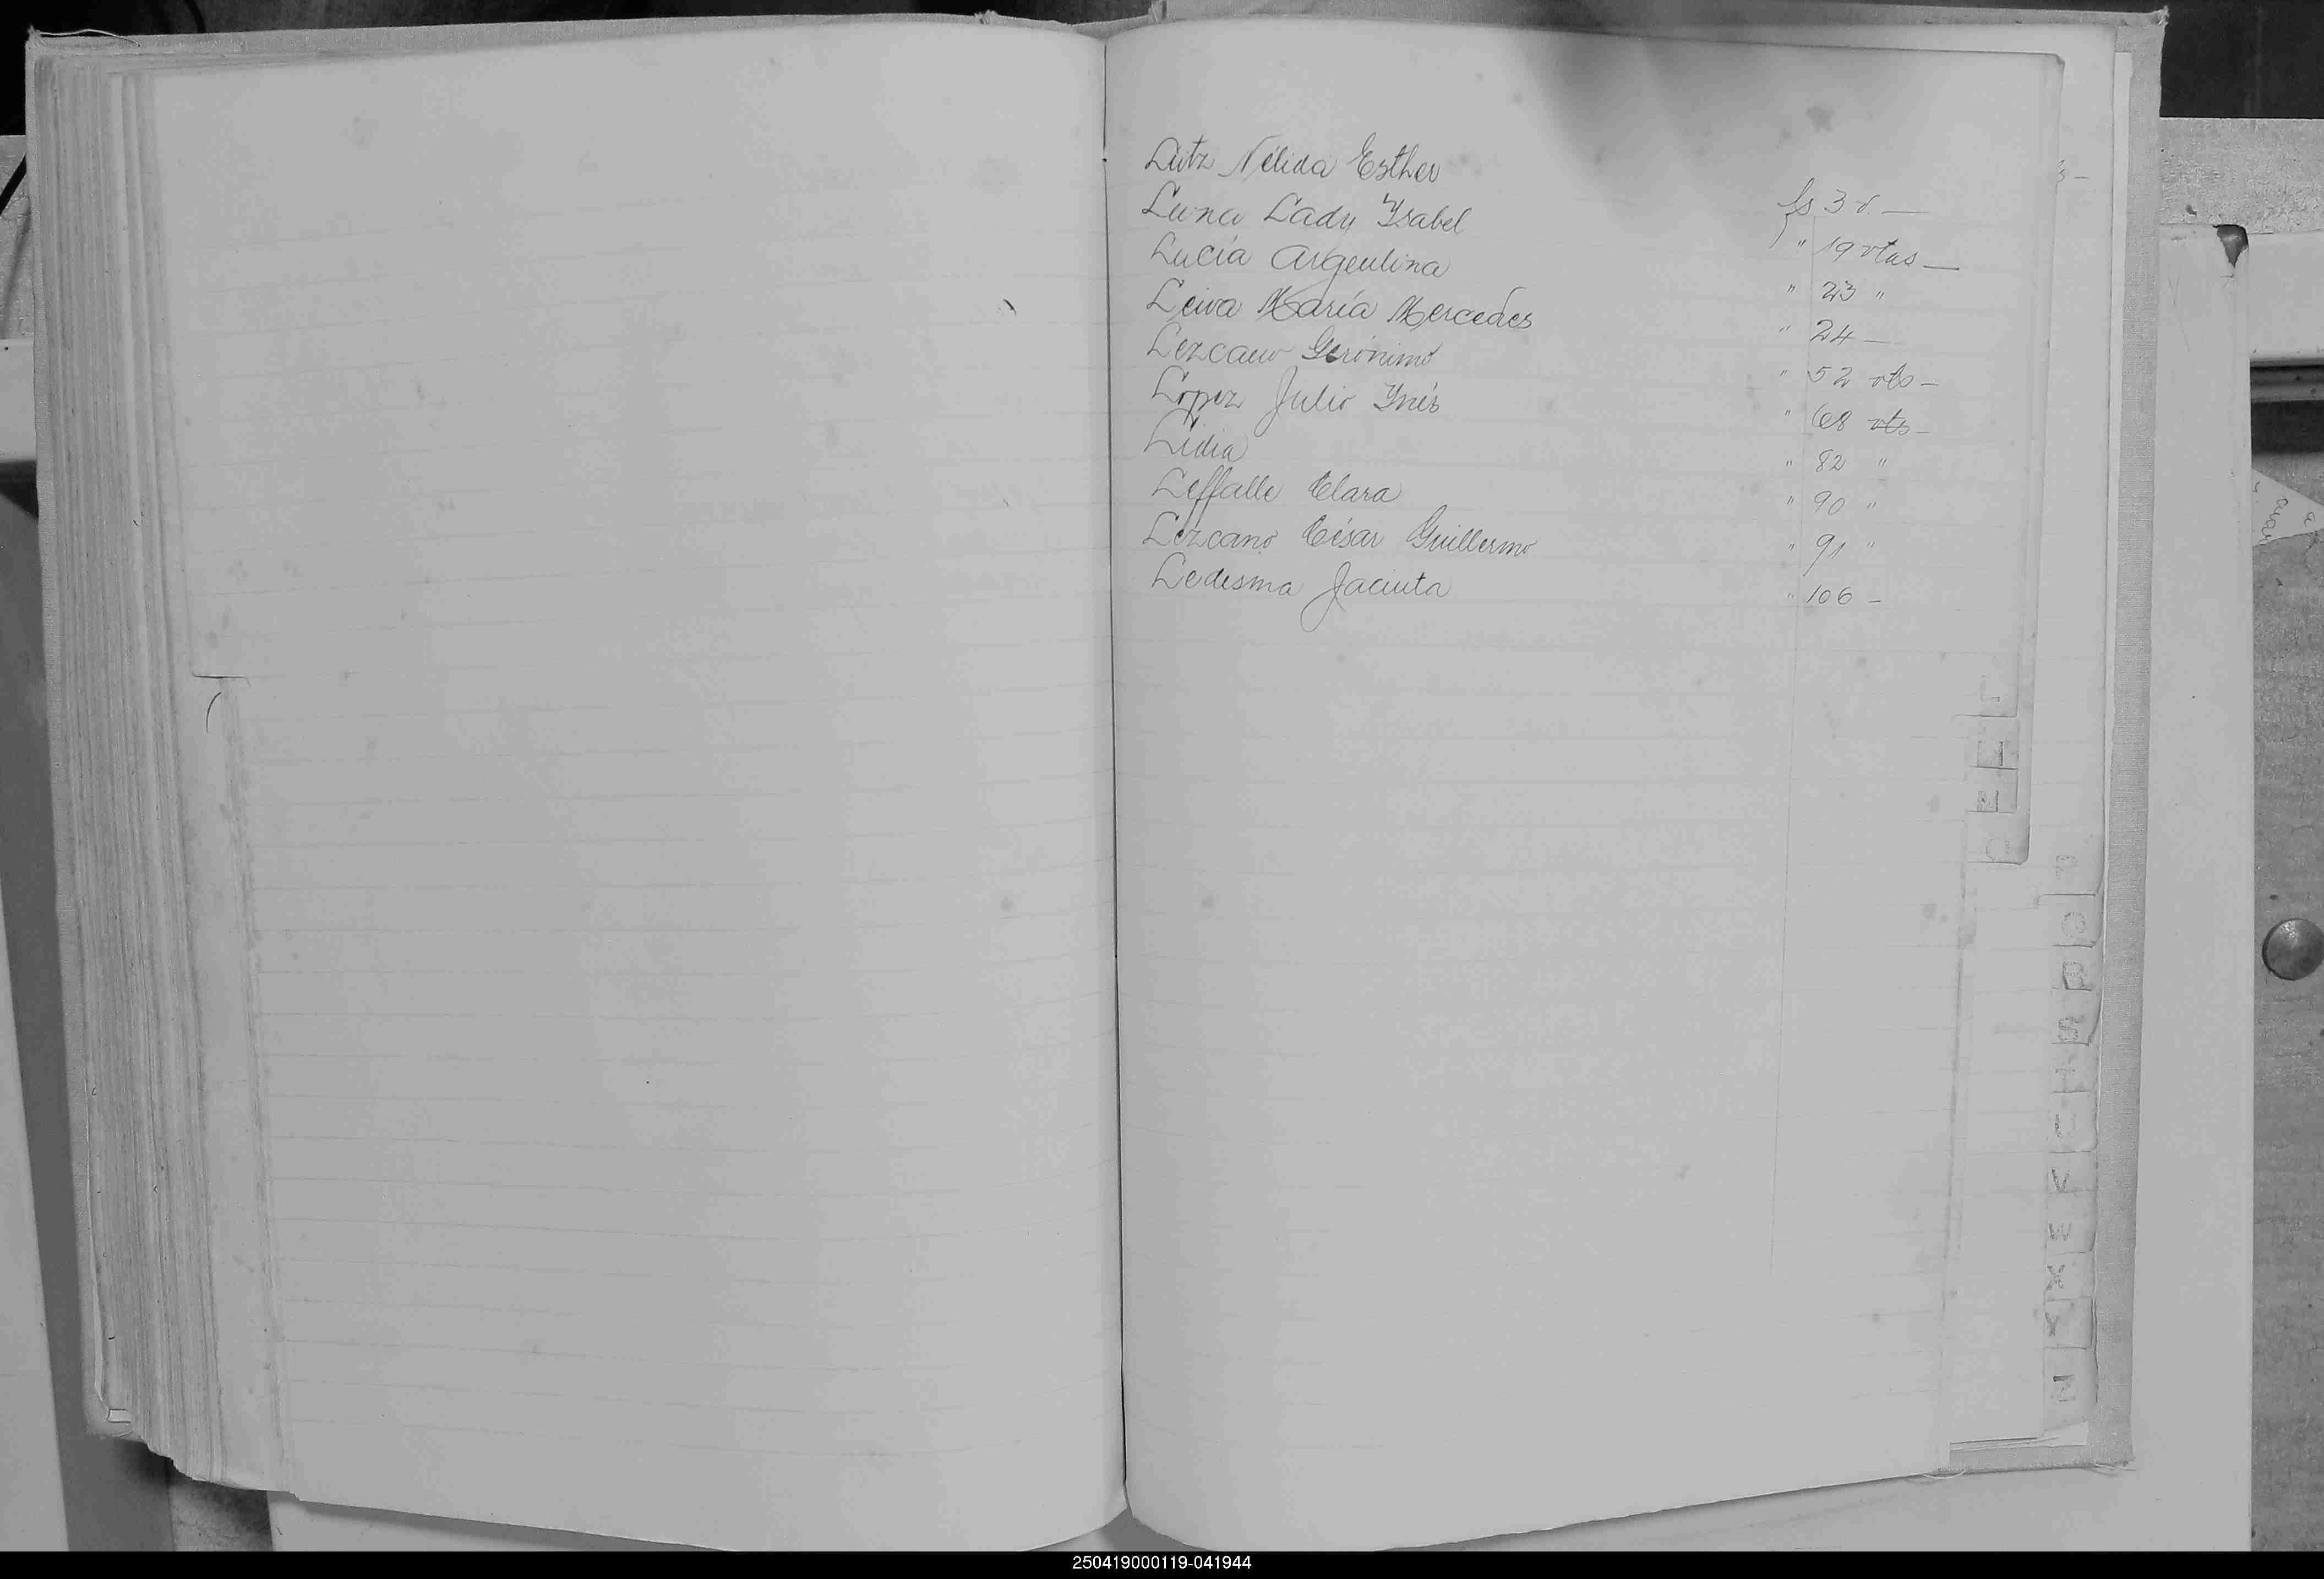 Lutz Nélida Esther fs 3 v. —
Luna Lady Ysabel " 19 vtas —
Lucía Argentina " 23 "
Leiva María Mercedes " 24 —
Lezcano Gerónimo " 52 vts —
López Julio Ynés " 68 vts —
Lidia " 82 "
Leffalle Clara " 90 "
Lezcano César Guillermo " 91 "
Ledesma Jacinta " 106 —
L
M
N
O
P
Q
R
S
T
U
V
W
X
Y
Z
250419000119-041944